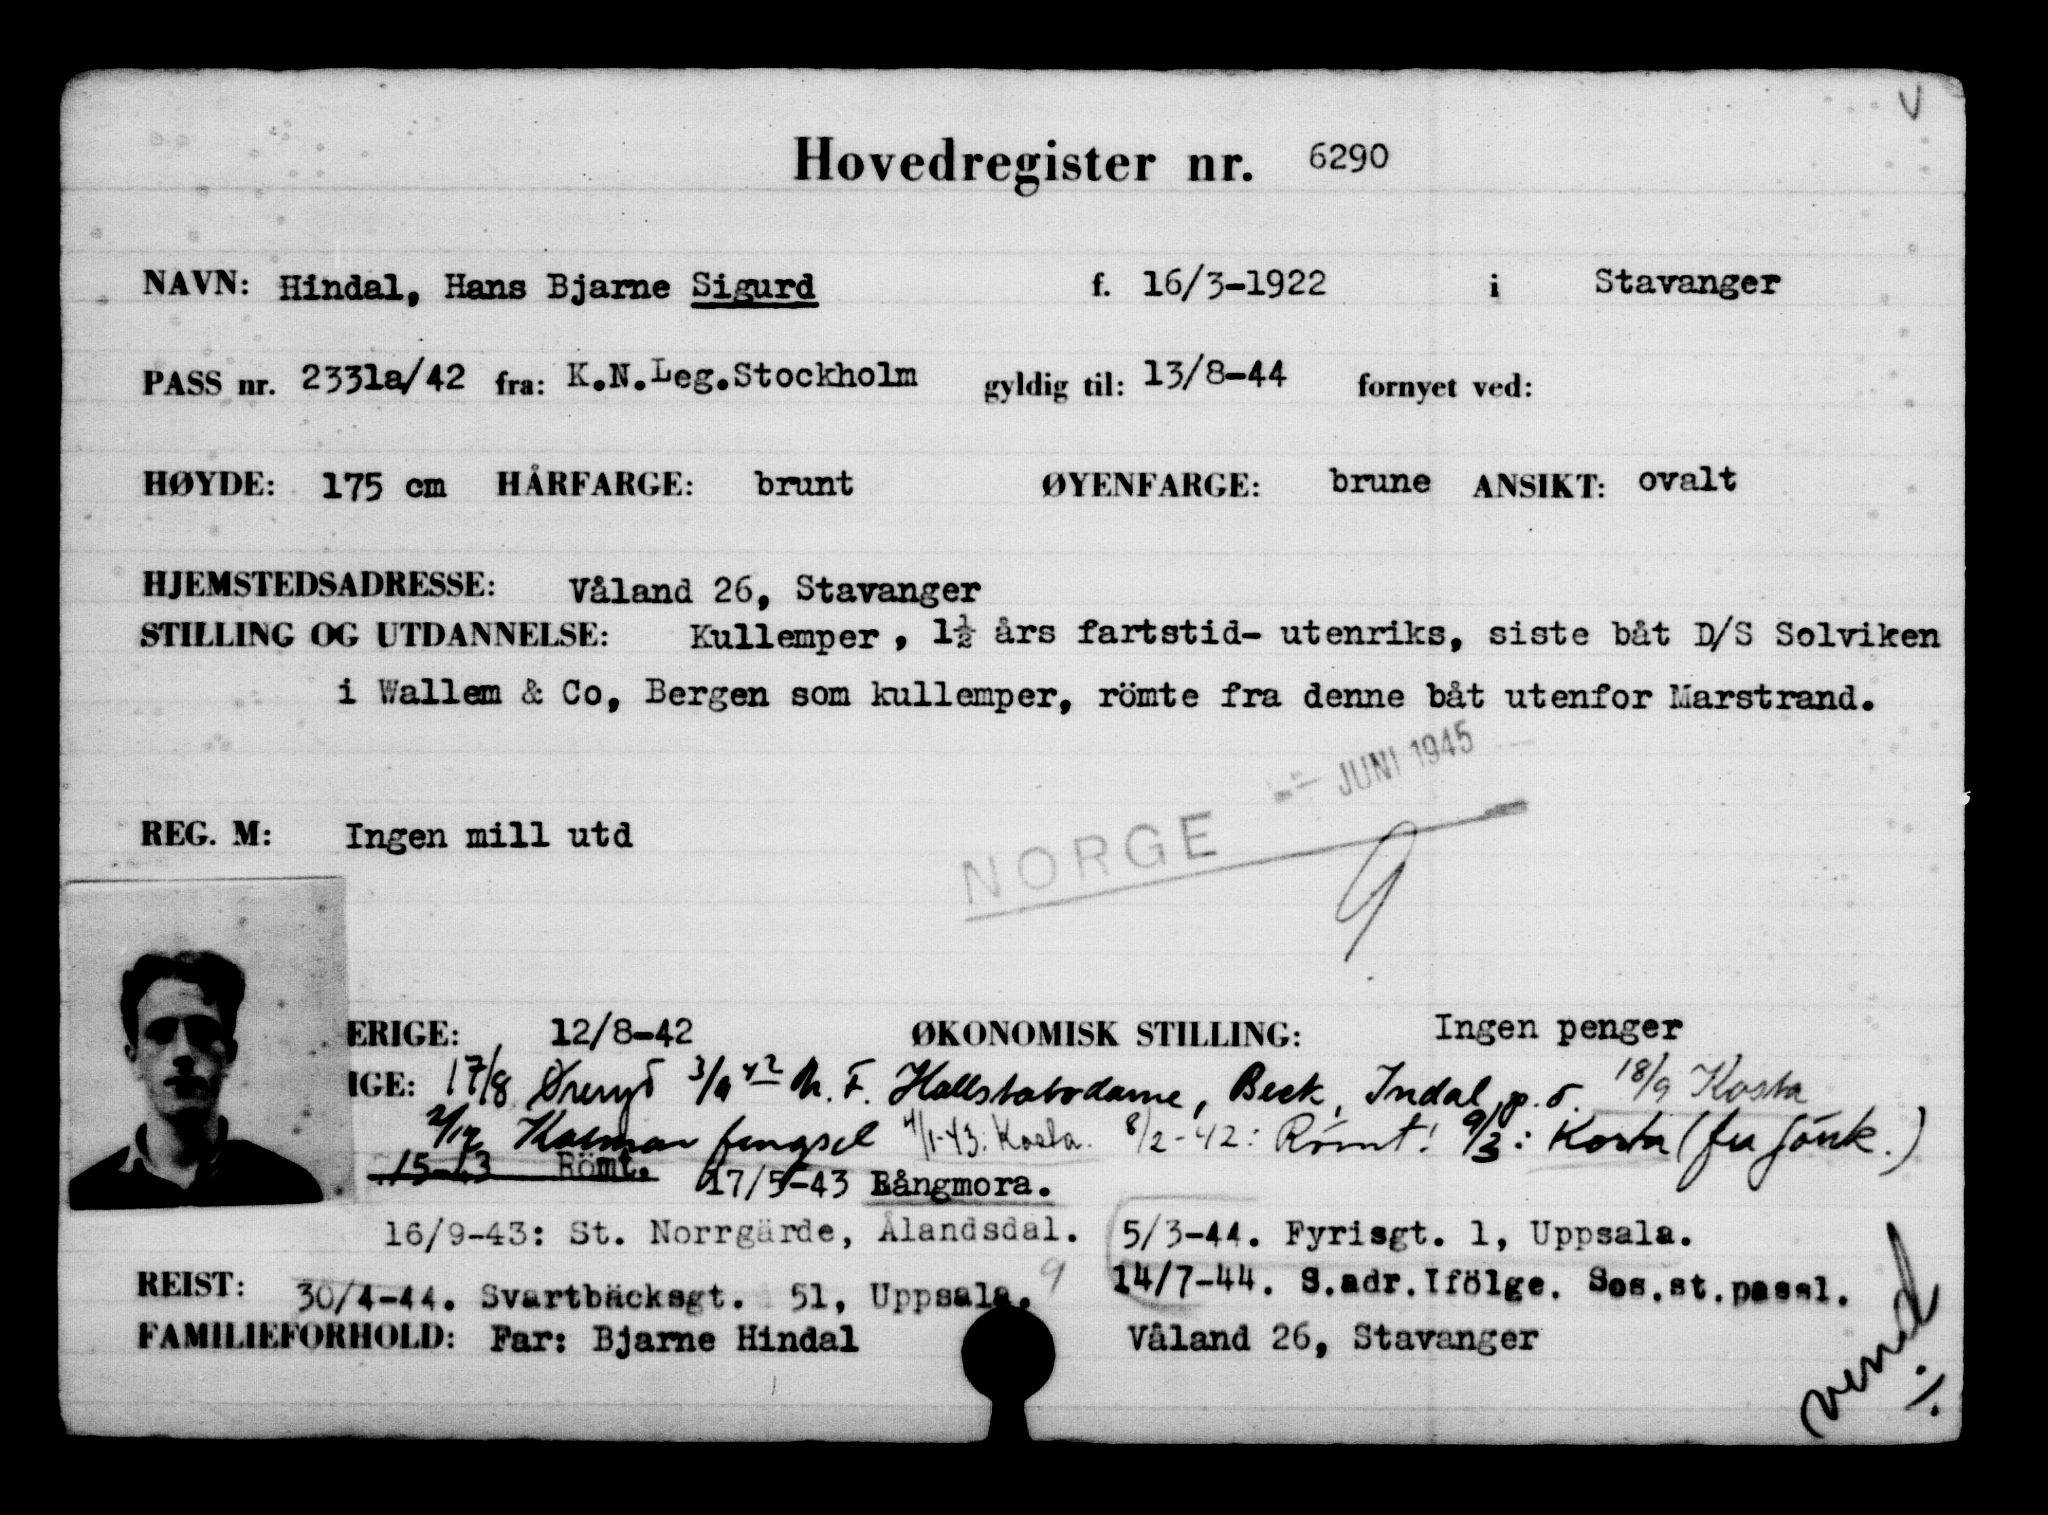 V
Hovedregister nr. 6290
NAVN: Hindal, Hans Bjarne Sigurd f. 16/3-1922 i Stavanger
PASS nr. 2331a/42 fra: K.N.Leg.Stockholm gyldig til: 13/8-44 fornyet ved:
HØYDE: 175 cm HÅRFARGE: brunt ØYENFARGE: brune ANSIKT: ovalt
HJEMSTEDSADRESSE: Våland 26, Stavanger
STILLING OG UTDANNELSE: Kullemper, 1½ års fartstid- utenriks, siste båt D/S Solviken
i Wallem & Co, Bergen som kullemper, römte fra denne båt utenfor Marstrand.
JUNI 1945
REG. M: Ingen mill utd
NORGE
9
ERIGE: 12/8-42 ØKONOMISK STILLING: Ingen penger
IGE: 17/8 Øreryd 3/9 42 Beck, Indal p.o. 18/9 Kosta
2/12 Kalmar fengsel 4/1-43: Kosta. 8/2-42: Rømt! 9/3: Kosta (fra Jönk.)
Römt. 17/5-43 Långmora.
16/9-43: St. Norrgärde, Ålandsdal. 5/3-44. Fyrisgt. 1, Uppsala.
REIST: 30/4-44. Svartbäcksgt. 51, Uppsala. 9 14/7-44. S.adr.Ifölge. Sos.st.passl.
FAMILIEFORHOLD: Far: Bjarne Hindal Våland 26, Stavanger
vend